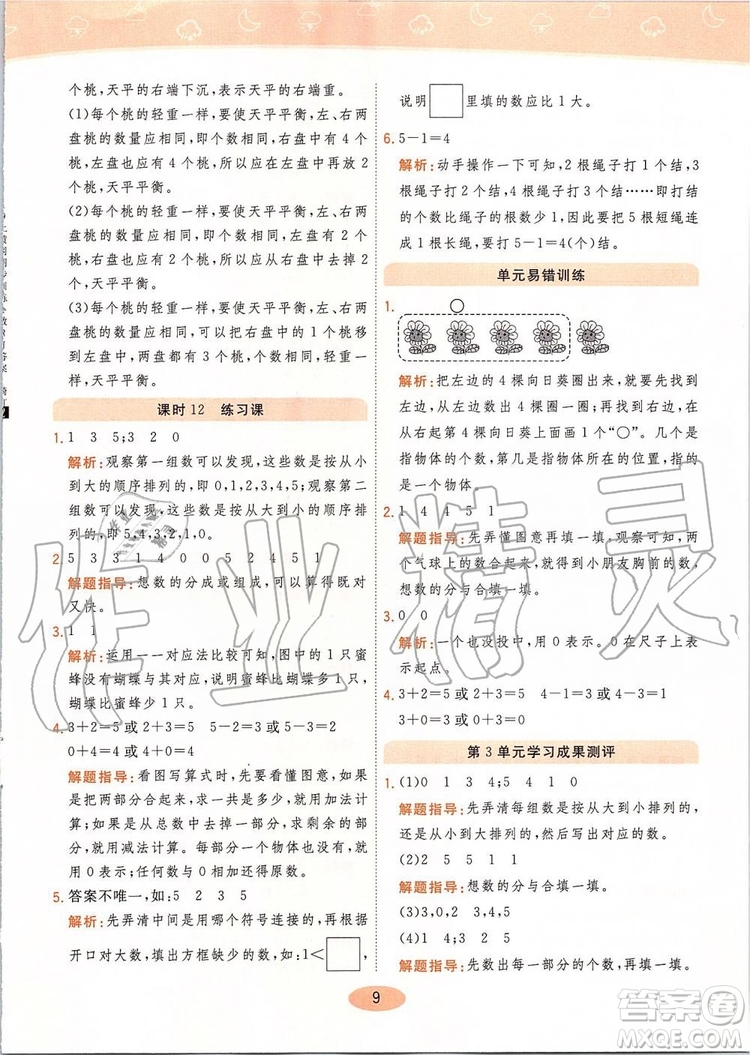 个桃,天平的右端下沉,表示天平的右端重。
(1)每个桃的轻重一样,要使天平平衡,左、右两
盘桃的数量应相同,即个数应相同,右盘中有 4
个桃,左盘也应有 4 个桃,所以应在左盘画 4 个
桃,天平平衡。
(2)每个桃的轻重一样,要使天平平衡,左、右两
盘桃的数量应相同,即个数应相同,左盘中有 2
个桃,右盘也应有 2 个桃,所以应在右盘划掉 2
个桃,天平平衡。
(3)每个桃的轻重一样,要使天平平衡,左、右两
盘桃的数量应相同,即个数应相同,右盘的 1 个桃
移到左盘中,两盘都有 3 个桃,个数相同,轻重一
样,天平平衡。
课时 12 练习课
1. 1 3 5;3 2 0
解析:观察第一组数可以发现,这些数是按从小
到大的顺序排列的,即 0,1,2,3,4,5;观察第二
组数可以发现,这些数是按从大到小的顺序排
列的,即 5,4,3,2,1,0。
2. 5 3 3 1 4 0 0 2 5 2 4 5 1
解题指导:想数的分成或组成,可以算得既对
又快。
3. 1 1
解析:运用一一对应法比较可知,图中的 1 只蜜
蜂没有蝴蝶与其对应,说明蜜蜂比蝴蝶多 1 只,
蝴蝶比蜜蜂少 1 只。
4. 3+2=5 或 2+3=5 5-2=3 或 5-3=2
0+4=4 或 4+0=4
解题指导:看图写算式时,先要看懂图意,如果
是把两部分合起来,求一共是多少,就用加法计
算;如果是从总数中去掉一部分,求剩余的部
分,就用减法计算。每部分中一个物体也没有
时,用 0 表示;任何数与 0 相加都得原数。
5. 答案不唯一,如:5 2 3 5
解析:先弄清中间是用哪个符号连接的,并根据
开口对大数,填出方框缺少的数,如:1<□,
说明□里填的数应比 1 大。
6. 5-1=4
解析:动手操作一下可知,2 根绳子打 1 个结,3
根绳子打 2 个结,4 根绳子打 3 个结……即打结
的个数比绳子的根数少 1,因此要把 5 根短绳连
成 1 根长绳,要打 5-1=4(个)结。
单元易错训练
1.
解析:把左边的 4 棵向日葵圈出来,可以从左边
起数出 4 棵向日葵圈一圈;把从左边数起的
第 4 棵向日葵上面画 1 个“○”。几个,
是指物体的个数,第几是指物体所在的位置,是
指一个物体。
2. 1 4 4 5 1
解题指导:先弄懂图意再填一填。观察可知,两
个气球上的数合起来,就得到小朋友胸前的数,
想数的分与合填一填。
3. 0 0
解析:一个也没投中,用 0 表示;0 在尺子上表
示起点。
4. 3+2=5 或 2+3=5 4-1=3 或 4-3=1
3+0=3 或 0+3=3
第 3 单元学习成果测评
1. (1)0 1 3 4;5 4 1 0
解题指导:先弄清每组数是按从大到小排列的,
还是从小到大排列的,然后写出对应的数。
(2)2 5 5 1 1
解题指导:想数的分与合填一填。
(3)3,0,2 3,4,5
(4)1 4;3 2 5
解题指导:先数出每一部分的个数,再填一填。
9
作业精灵
答案圈
MXQE.COM